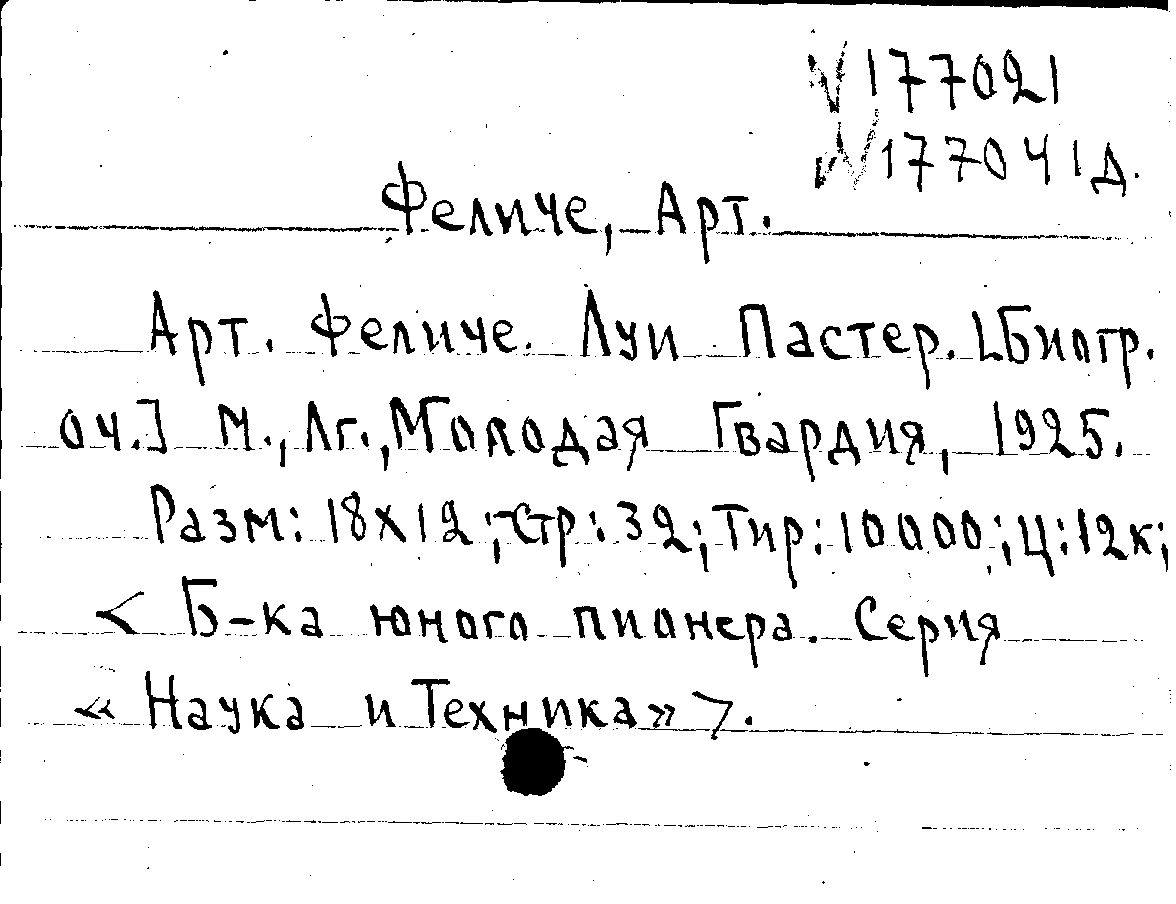 √ 177021
√ 177041д.
Феличе, Арт.
Арт. Феличе. Луи Пастер. [Биогр.
оч.] М., Лг., Молодая Гвардия, 1925.
Разм: 18х12; стр: 32; Тир: 10000; Ц: 12к;
< Б-ка юного пионера. Серия
« Наука и Техника» >.